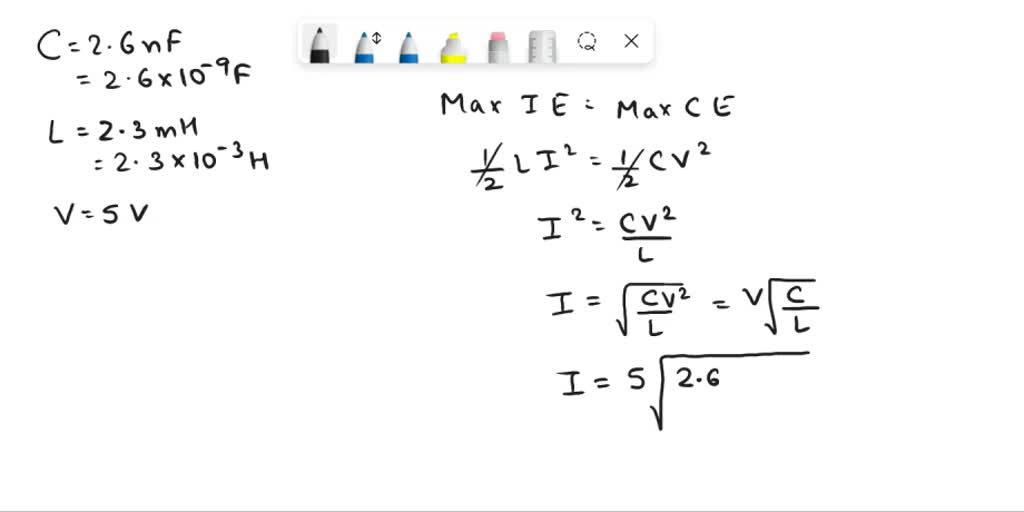 C = 2.6nF
= 2.6×10⁻⁹F
L = 2.3mH
= 2.3×10⁻³H
V = 5V
Max IE = Max CE
1/2 LI² = 1/2 CV²
I² = CV²/L
I = √(CV²/L) = V√(C/L)
I = 5√2.6